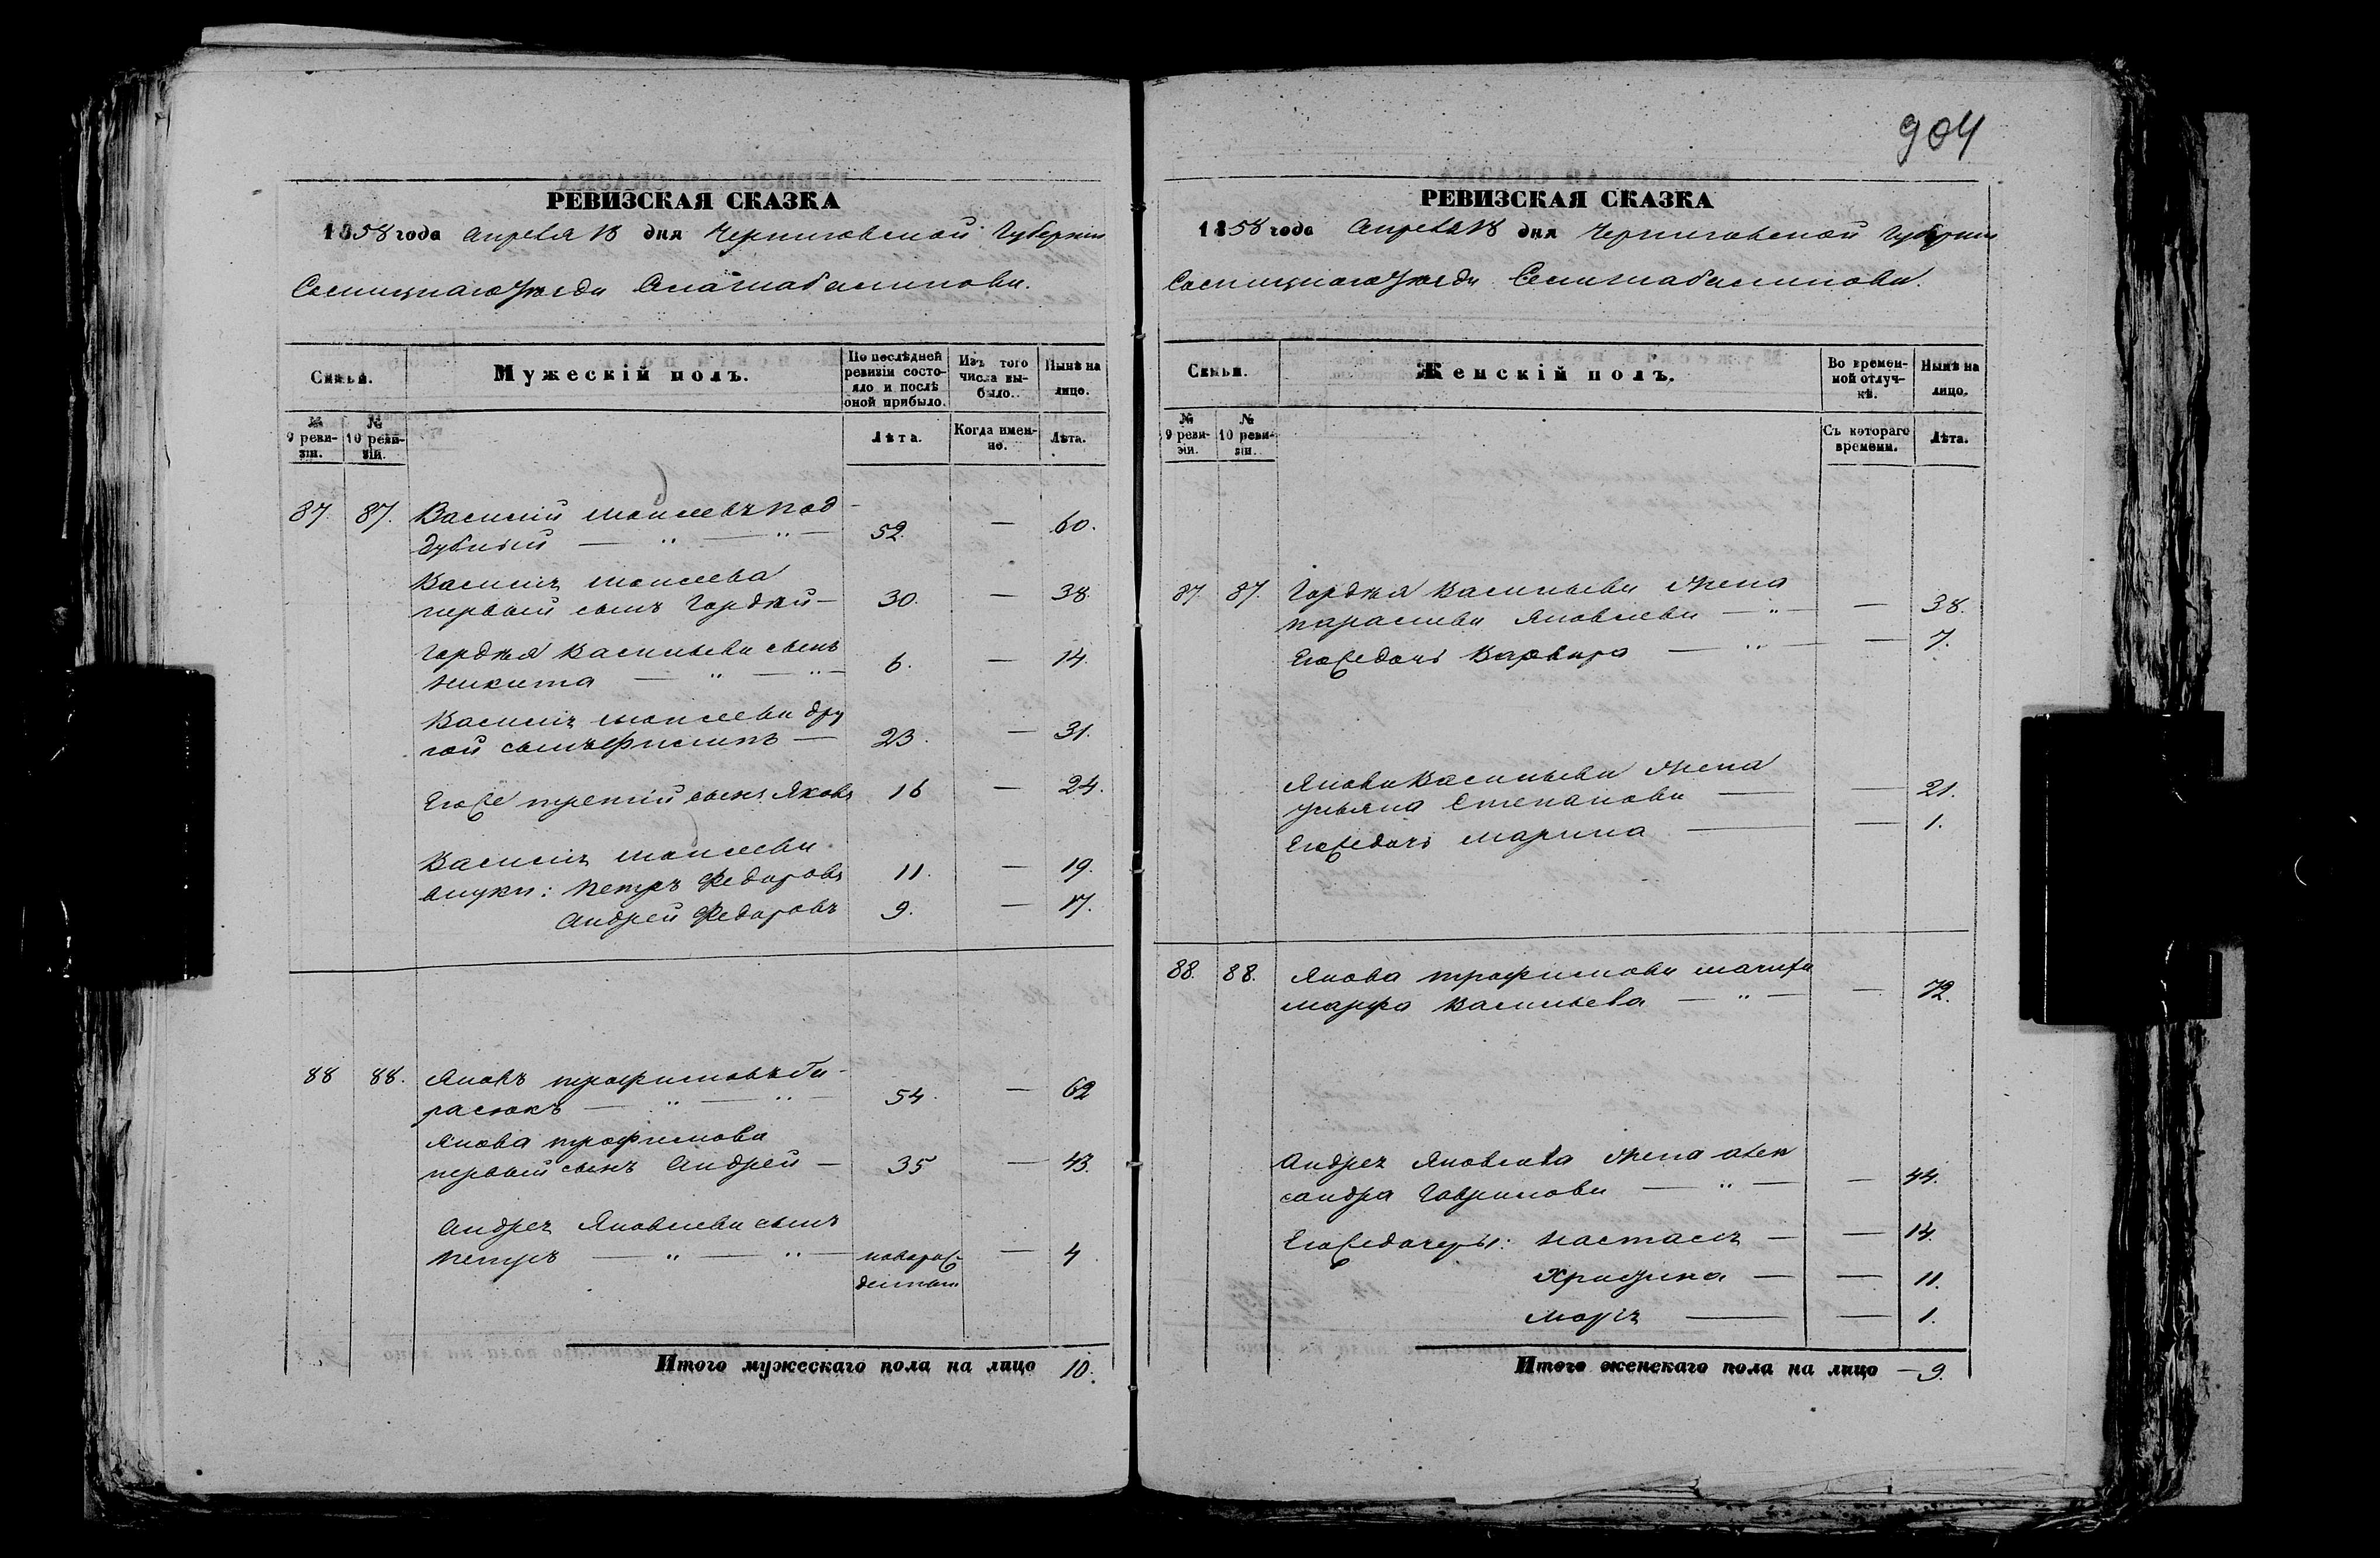 904
РЕВИЗСКАЯ СКАЗКА
1858 года Апреля 18 дня Черниговской Губернии
Сосницкаго Уезда Села
Семьи.
Мужескій полъ.
По послѣдней ревизіи состояло и послѣ оной прибыло.
Изъ того числа выбыло.
Нынѣ на лицо.
№ 9 ревизіи.
№ 10 ревизіи.
Лѣта.
Когда именно.
Лѣта.
87. 87. Василій Моисеевъ Под
дубный — " — " — 52. — 60.
Василія Моисеева
первый сынъ Гордѣй — 30. — 38.
Гордѣя Васильева сынъ
Никита — " — " — 6. — 14.
Василія Моисеева дру
гой сынъ Филипъ — 23. — 31.
Егоже третій сынъ Яковъ 16 — 24.
Василія Моисеева
внуки: Петръ Федоровъ 11. — 19.
Андрей Федоровъ 9. — 17.
88 88. Яковъ Трофимовъ Та-
расюкъ — " — " — 54. — 62
Якова Трофимова
первый сынъ Андрей — 35 — 43.
Андрея Яковлева сынъ
Петръ — " — " — новорож
денный — 4
Итого мужескаго пола на лицо 10.
РЕВИЗСКАЯ СКАЗКА
1858 года Апреля 18 дня Черниговской Губернии
Сосницкаго Уезда Села
Семьи.
Женскій полъ.
Во временной отлучкѣ.
Нынѣ на лицо.
№ 9 ревизіи.
№ 10 ревизіи.
Съ котораго времени.
Лѣта.
87 87. Гордѣя Васильева жена
Парасква Яковлева — " — — 38.
Егоже дочь Варвара — " — — 7.
Якова Васильева жена
Ульяна Степанова — — 21.
Егоже дочь Марина — — 1.
88. 88. Якова Трофимова мачиха
Марфа Васильева — " — — 72.
Андрея Яковлева жена Алек
сандра Гаврилова — " — — 44.
Егоже дочери: Настасія — — 14.
Христина — — 11.
Марія — — 1.
Итого женскаго пола на лицо — 9.